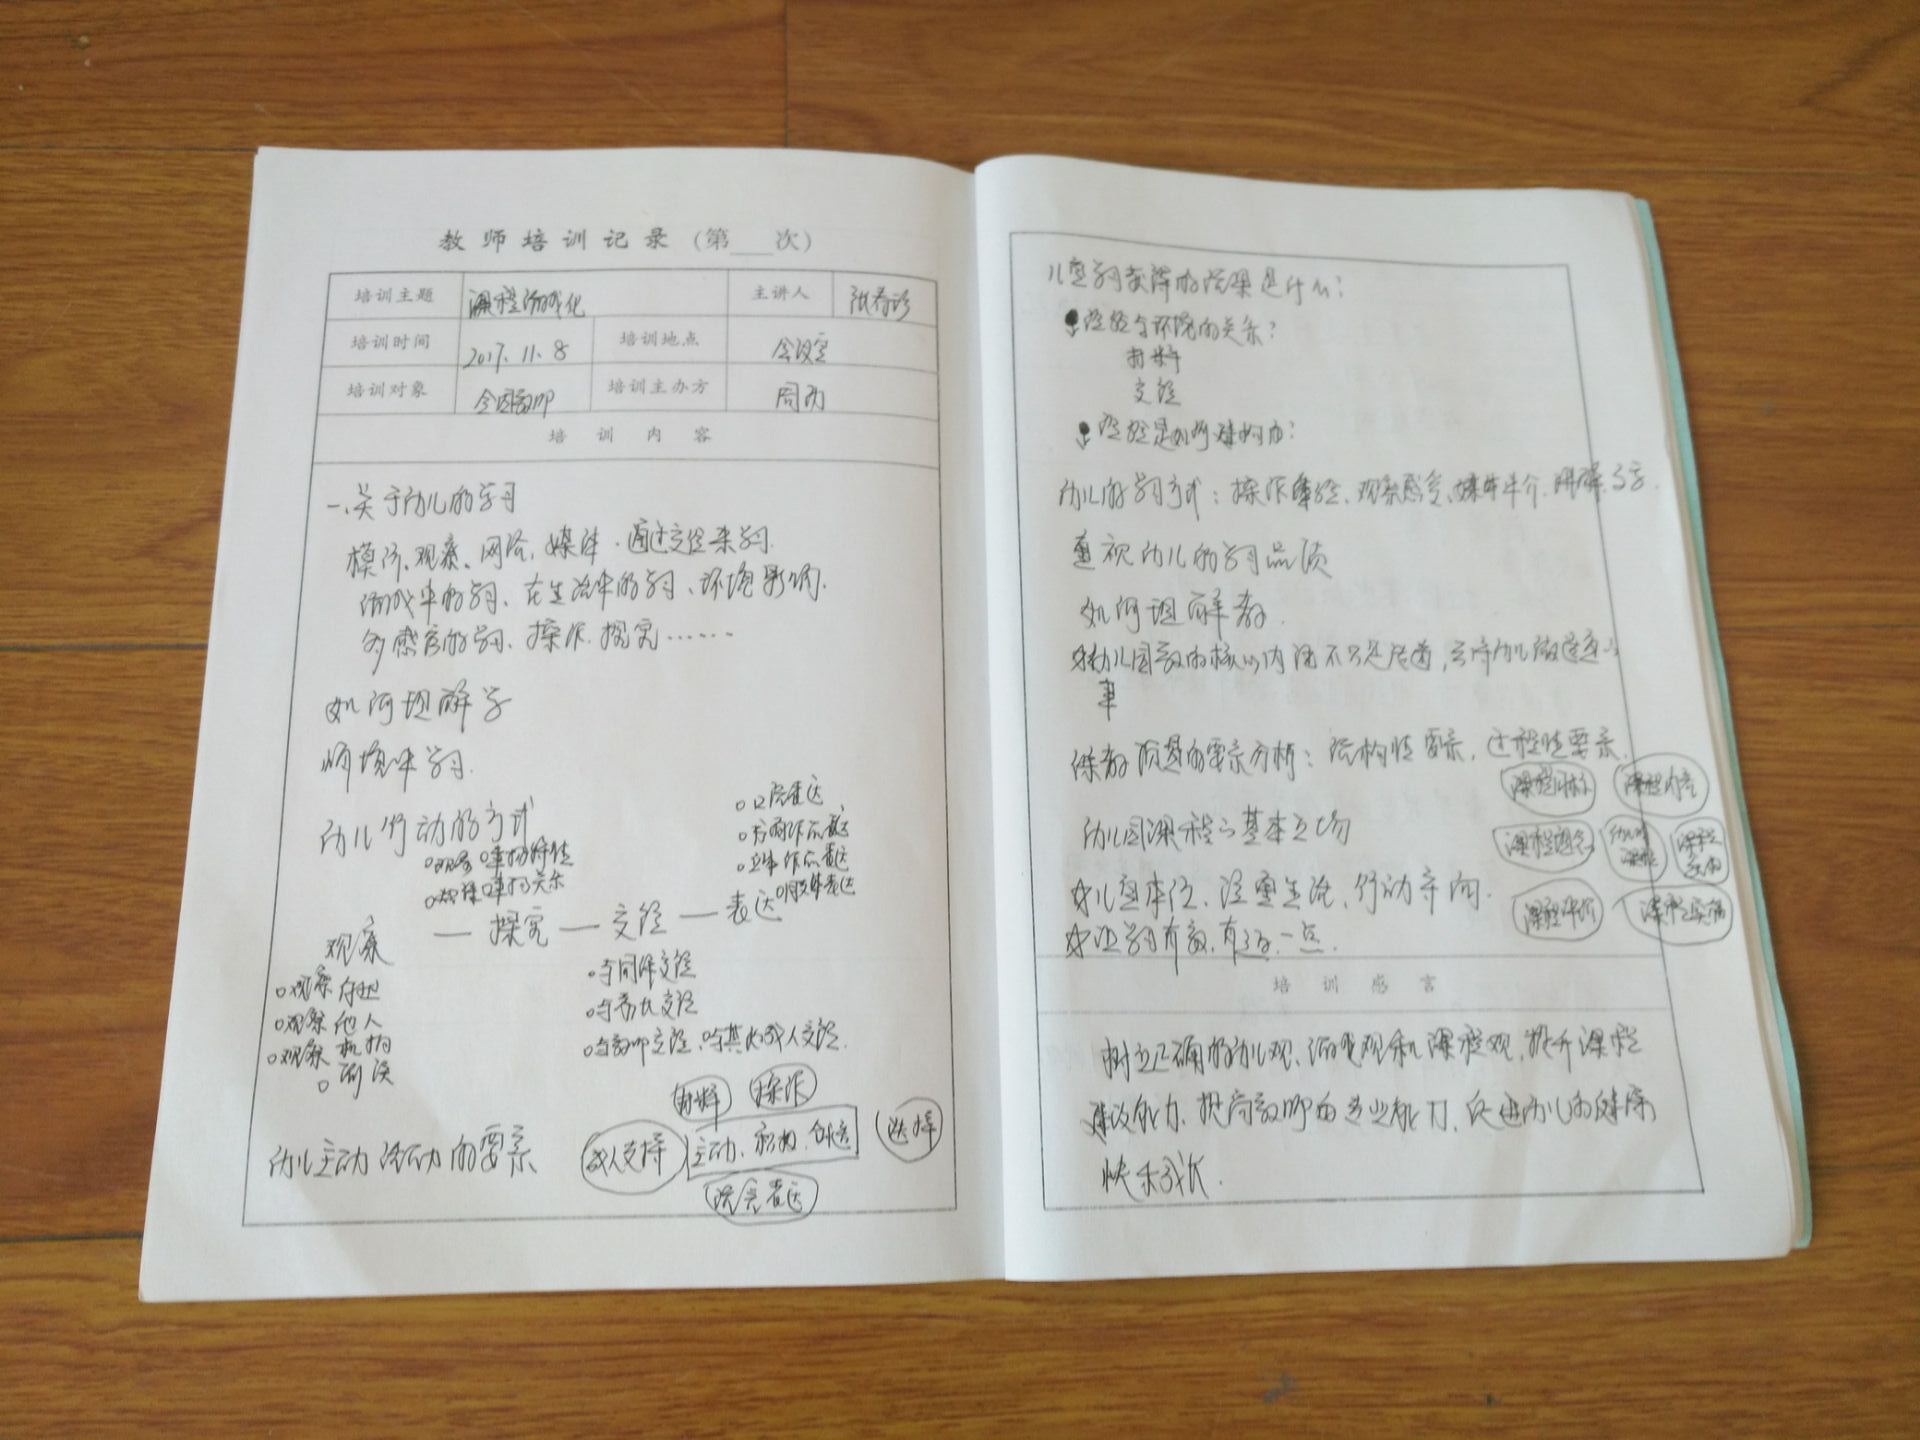 教师培训记录(第___次)
培训主题 课程游戏化 主讲人 张春
培训时间 2017.11.8 培训地点 会议室
培训对象 全园教师 培训主办方 园内
培训内容
一、关于幼儿的学习
模仿、观察、网络、媒体、通过交往来学习.
游戏中的学习、在生活中的学习、环境影响.
多感官的学习、操作、探究……
如何理解学
情境中学习.
幼儿行动的方式
观察 — 探究 — 交往 — 表达
观察 事物特性
事物关系
口语表达
作品表达
立体作品表达
肢体表达
观察自然
观察他人
观察事物
阅读
与同伴交往
与家长交往
与教师交往、与其他成人交往.
幼儿主动活动的要素
材料 操作
成人支持 主动、积极、创造 选择
语言表达
儿童学习获得的结果是什么?
经验与环境的关系?
材料
交往
经验是如何建构的?
幼儿的学习方式: 操作体验、观察感受、媒体中介、讲解
重视幼儿的学习品质
如何理解教
幼儿园教的核心内涵不只是传道,支持幼儿做适宜的
事
保教质量的要素分析: 结构性要素, 过程性要素.
幼儿园课程的基本立场
课程目标 课程内容
课程理念
课程评价 课程实施
儿童本位、注重生活、行动导向.
让学习有趣、有效一点.
培训感言
树立正确的幼儿观、游戏观和课程观,提升课程
建设能力、提高教师的专业能力,促进幼儿的健康
快乐成长.